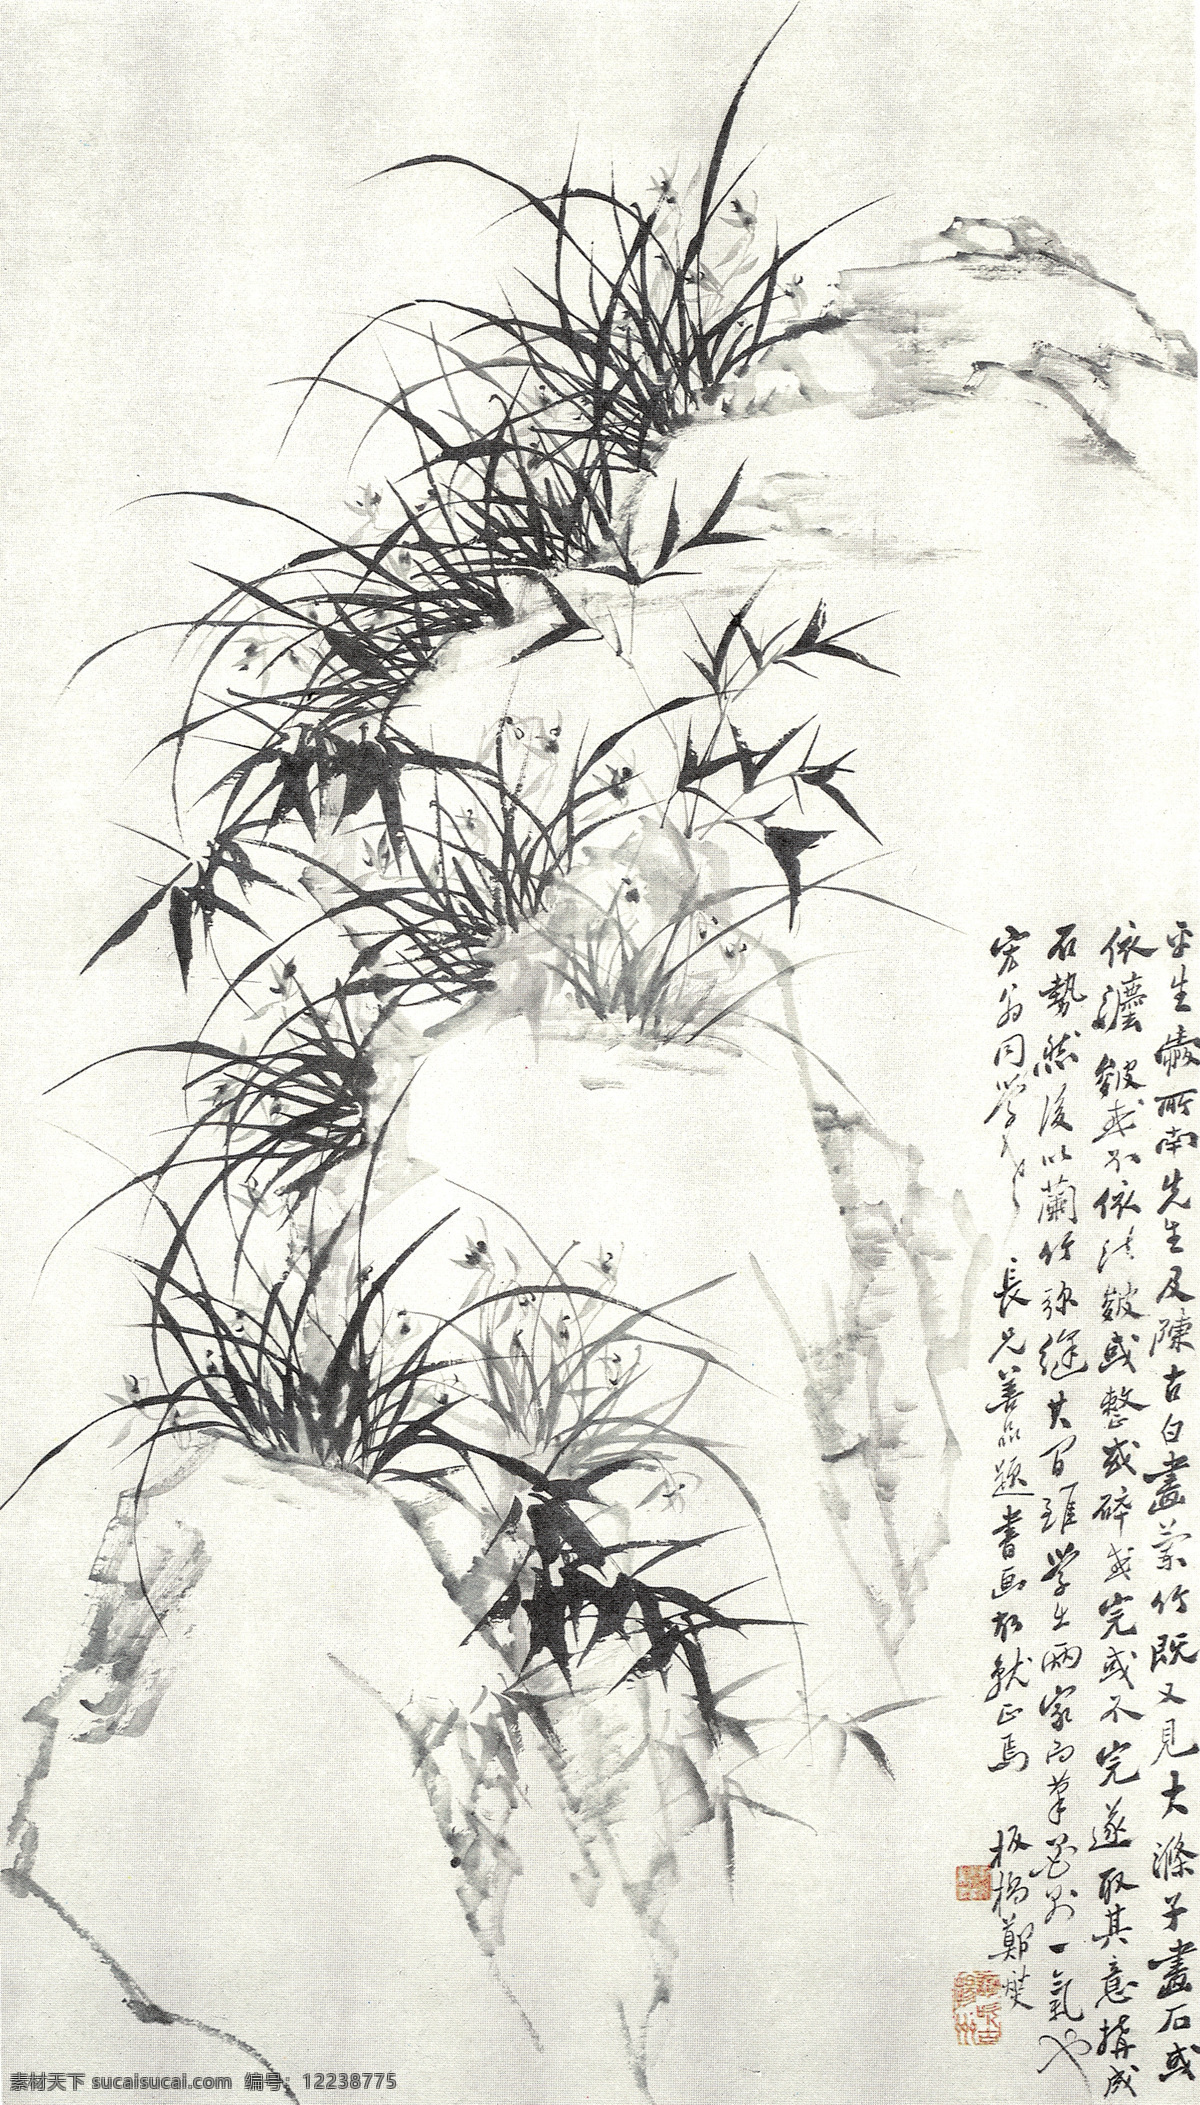 平生愛所南先生及陳古白畫蘭竹既又見大滌子畫石或
依灋皴或不依法皴或整或碎或完或不完遂取其意搆成
石勢然後以蘭竹弥縫其間雖學出兩家而筆墨則一氣也
宏翁同學老長兄善品題書画故就正焉 板橋鄭燮
素材天下 sucaisucai.com 编号：12238775